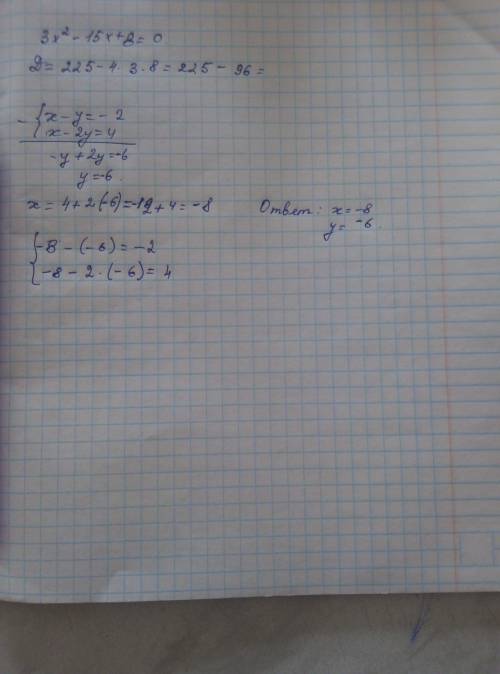 3x² - 15x + 8 = 0
D = 225 - 4 · 3 · 8 = 225 - 96 =
- { x - y = - 2
x - 2y = 4
-y + 2y = -6
y = -6.
x = 4 + 2(-6) = -12 + 4 = -8
Ответ: x = -8
y = -6.
{ -8 - (-6) = -2
-8 - 2 · (-6) = 4